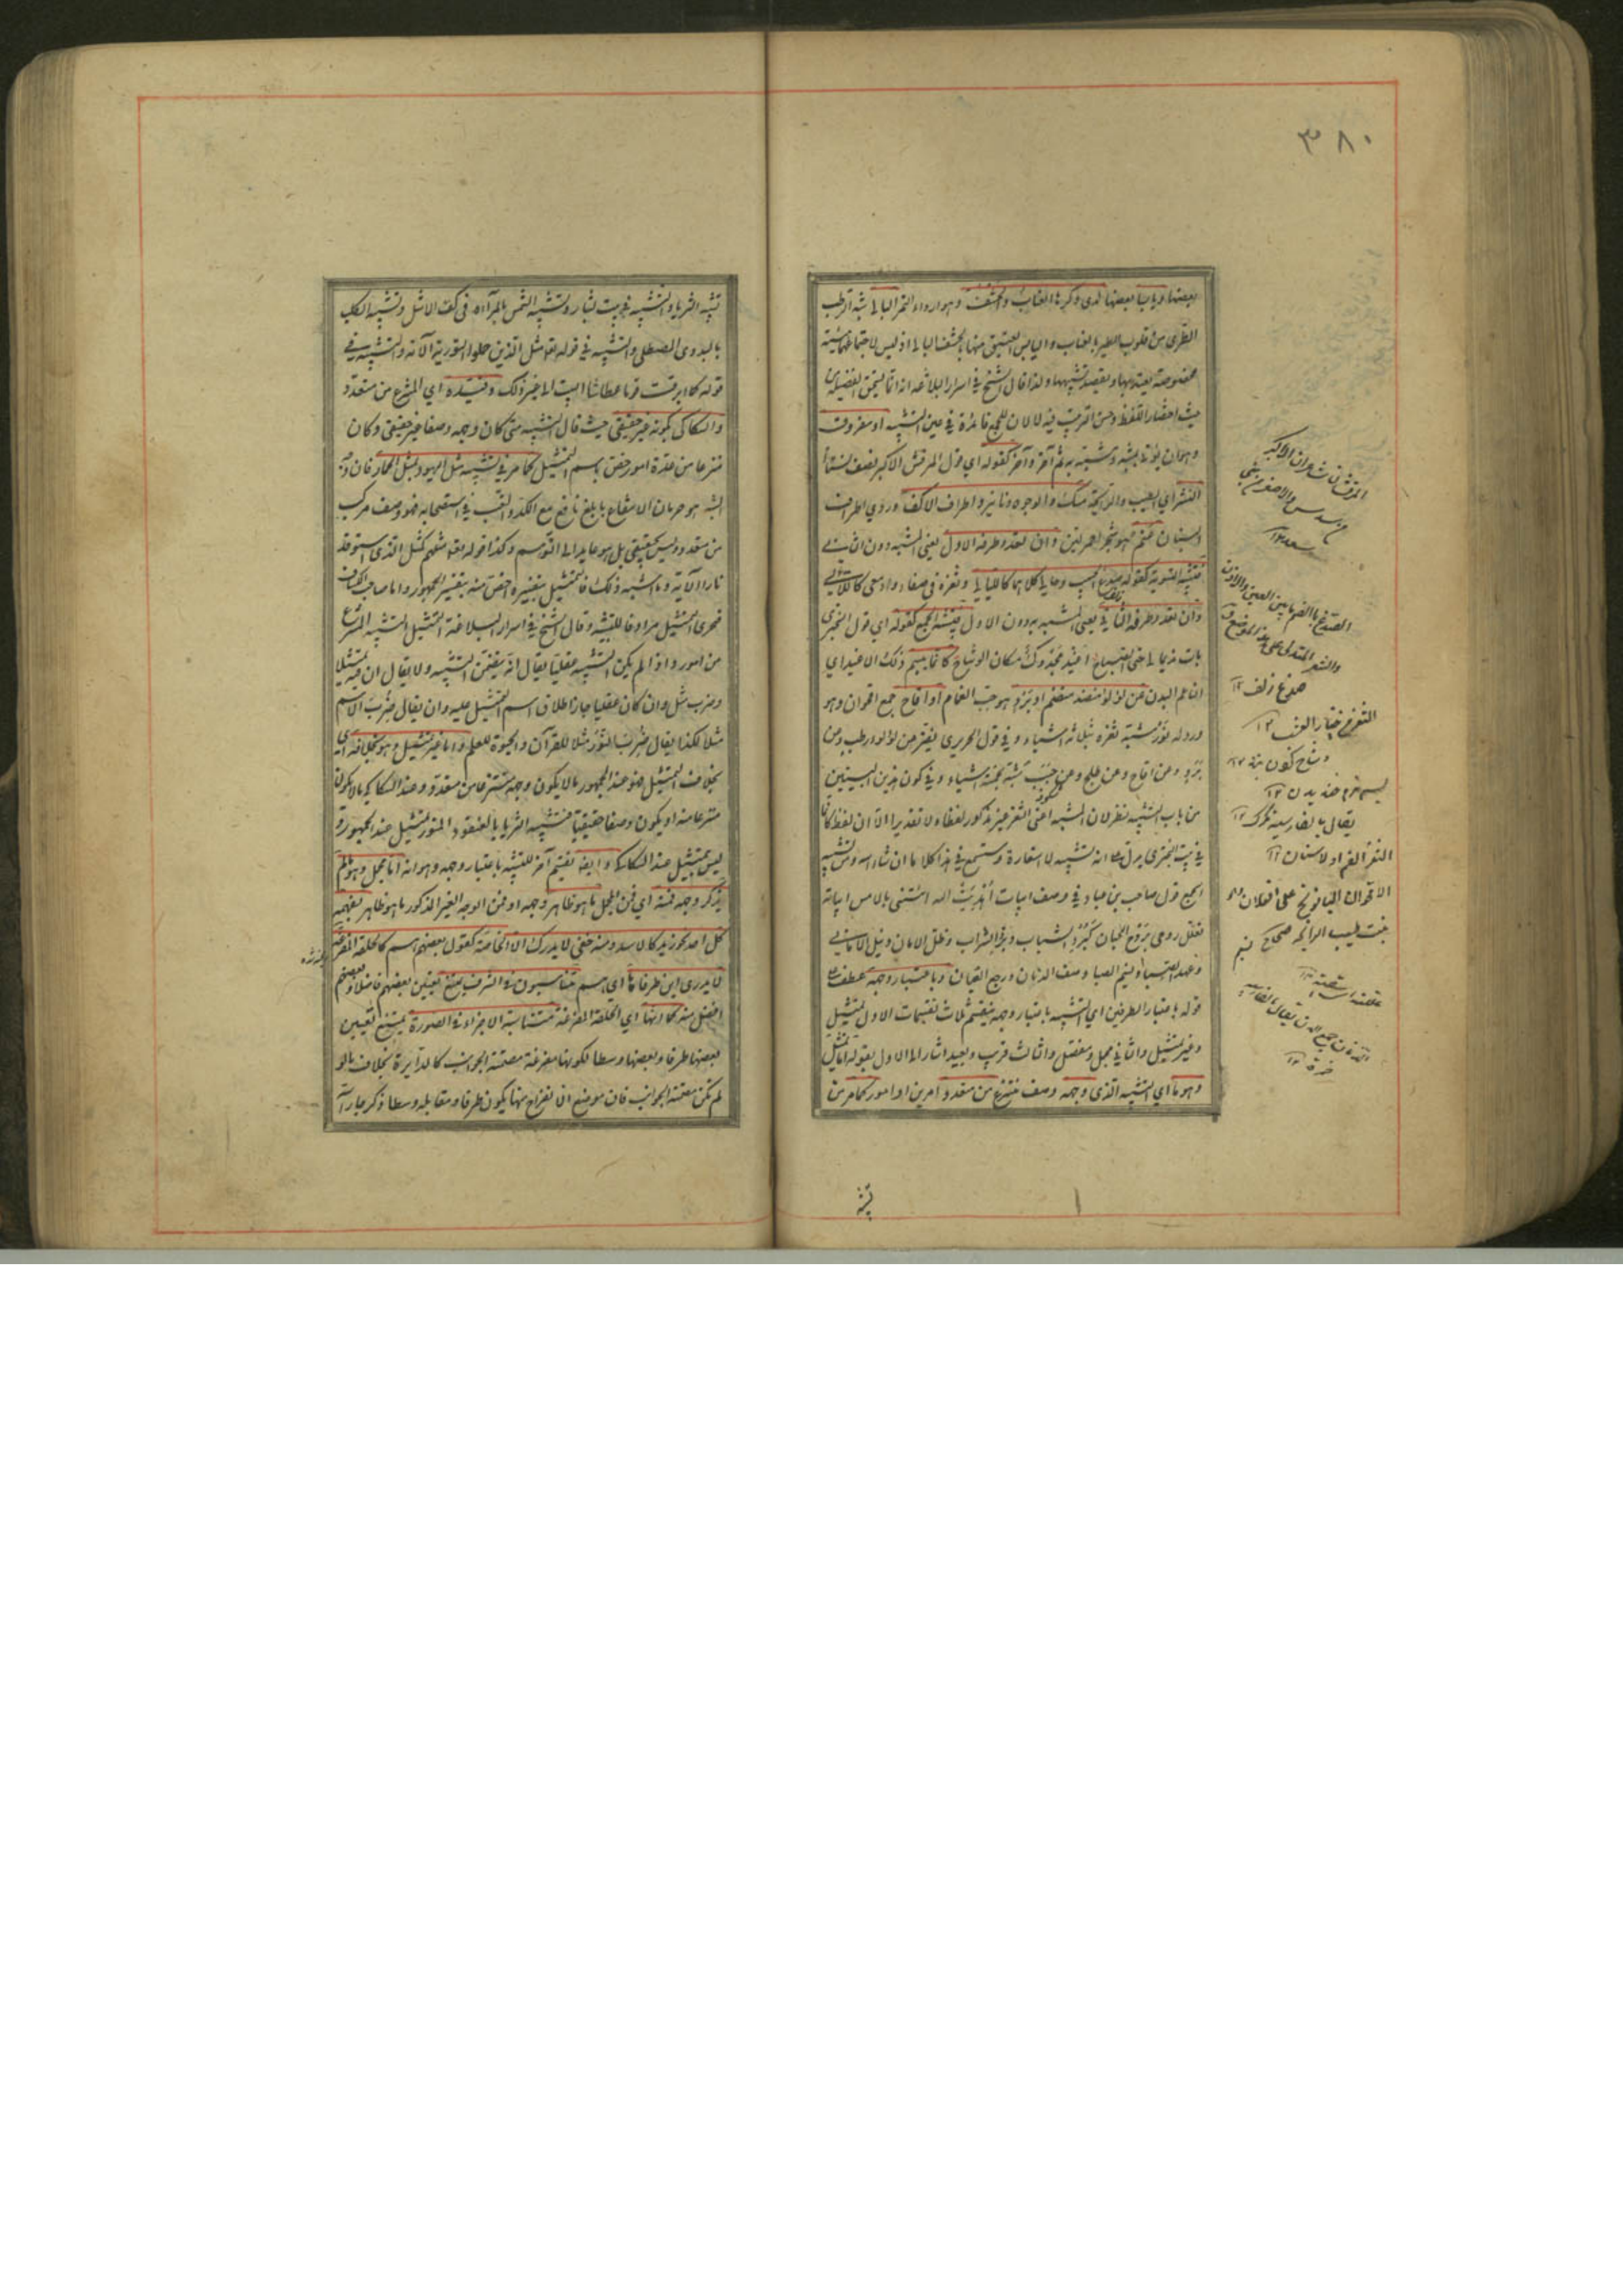 ٣٨٠
بعضها ويابسا بعضها لدى وكرها العناب والحشف وهو اردأ التمر البالي شبه الرطب
الطري من قلوب الطير بالعناب واليابس العتيق منها بالحشف البالي اذ ليس لاجتماعهما هيئة
مخصوصة يعتد بها ويقصد تشبيهها ولذا قال الشيخ في اسرار البلاغة انه انما يستحق الفضيلة من
حيث اختصار اللفظ وحسن الترتيب فيه لا لان للجمع فائدة في عين التشبيه او مفروق
وهو ان يؤتى بمشبه ومشبه به ثم آخر وآخر كقوله اي قول المرقش الاكبر يصف نساء
النشر اي الطيب والرائحة مسك والوجوه دنانير واطراف الاكف وروي اطراف
البنان عنم هو شجر احمر لين وان تعدد طرفه الاول يعني المشبه دون الثاني
فتشبيه التسوية كقوله صدغ الحبيب وحالي كلاهما كالليالي وثغره في صفاء وادمعي كاللآلي
وان تعدد طرفه الثاني يعني المشبه به دون الاول فتشبيه الجمع كقوله اي قول البحتري
بات نديما لي حتى الصباح اغيد مجدول مكان الوشاح كانما يبسم ذلك الاغيد اي
الناعم البدن عن لؤلؤ منضد منظم او برد هو حب الغمام او اقاح جمع اقحوان وهو
ورد له نور شبه ثغره بثلاثة اشياء وفي قول الحريري يفتر عن لؤلؤ رطب وعن
برد وعن اقاح وعن طلع وعن حبب شبه بخمسة اشياء وفي كون هذين البيتين
من باب التشبيه نظر لان المشبه اعني الثغر غير مذكور لفظا ولا تقديرا الا ان لفظ كانما
في بيت البحتري يدل على انه تشبيه لا استعارة وستسمع في هذا كلاما ان شاء الله ومن تشبيه
الجمع قول صاحب بن عباد في وصف ابيات اهديت اليه اتتني بالامس ابياته
تعلل روحي بروح الجنان كبرد الشباب وبرد الشراب وظل الامان ونيل الاماني
وعهد الصبا ونسيم الصبا وصفو الدنان ورجع القيان وباعتبار وجهه عطف على
قوله باعتبار الطرفين اي التشبيه باعتبار وجهه ينقسم ثلاث تقسيمات الاول تمثيل
وغير تمثيل والثاني مجمل ومفصل والثالث قريب وبعيد اشار الى الاول بقوله اما تمثيل
وهو ما اي التشبيه الذي وجهه وصف منتزع من متعدد امرين او امور كما مر من
تشبيه
المرقش شاعران الاكبر
صدغ زلف ١٢
وشاح
بنت طيب الرائحة صحاح
تشبيه الثريا والتشبيه في بيت بشار وتشبيه الشمس بالمرآة في كف الاشل وتشبيه الكلب
بالبدوي المصطلي والتشبيه في قوله تعالى مثل الذين حملوا التورية الآية والتشبيه في
قوله كما ابرقت قوما عطاشا البيت الى غير ذلك وقيده اي المنتزع من متعدد
والسكاكي بكونه غير حقيقي حيث قال التشبيه متى كان وجهه وصفا غير حقيقي وكان
منتزعا من عدة امور خص باسم التمثيل كما مر في تشبيه مثل اليهود بمثل الحمار فان وجه
الشبه هو حرمان الانتفاع بابلغ نافع مع الكد والتعب في استصحابه فهو وصف مركب
من متعدد وليس بحقيقي بل هو عائد الى التوهم وكذا قوله تعالى مثلهم كمثل الذي استوقد
نارا الآية وما اشبه ذلك فالتمثيل بتفسيره اخص منه بتفسير الجمهور واما صاحب الكشاف
فجرى التمثيل مرادفا للتشبيه وقال الشيخ في اسرار البلاغة التمثيل التشبيه المنتزع
من امور واذا لم يكن التشبيه عقليا يقال انه يتضمن التشبيه ولا يقال ان فيه تمثيلا
وضرب مثل وان كان عقليا جاز اطلاق اسم التمثيل عليه وان يقال ضرب الاسم
مثلا لكذا يقال ضرب النور مثلا للقرآن والحيوة للعلم واما غير تمثيل وهو بخلافه اي
بخلاف التمثيل فهو عند الجمهور ما لا يكون وجهه منتزعا من متعدد وعند السكاكي ما لا يكون
منتزعا منه او يكون وصفا حقيقيا فتشبيه الثريا بالعنقود المنور تمثيل عند الجمهور
ليس بتمثيل عند السكاكي وايضا تقسيم آخر للتشبيه باعتبار وجهه وهو انه اما مجمل وهو ما لم
يذكر وجهه فمنه اي فمن المجمل ما هو ظاهر وجهه او فمن الوجه الغير المذكور ما هو ظاهر يفهمه
كل احد نحو زيد كالاسد ومنه خفي لا يدركه الا الخاصة كقول بعضهم هم كالحلقة المفرغة
لا يدرى اين طرفاها اي هم متناسبون في الشرف يمتنع تعيين بعضهم فاضلا وبعضهم
افضل منه كما انها اي الحلقة المفرغة متناسبة الاجزاء في الصورة يمتنع تعيين
بعضها طرفا وبعضها وسطا لكونها مفرغة مصمتة الجوانب كالدائرة بخلاف ما لو
لم تكن مصمتة الجوانب فان موضع الانفراج منها يكون طرفا ومقابله وسطا ذكر جار الله